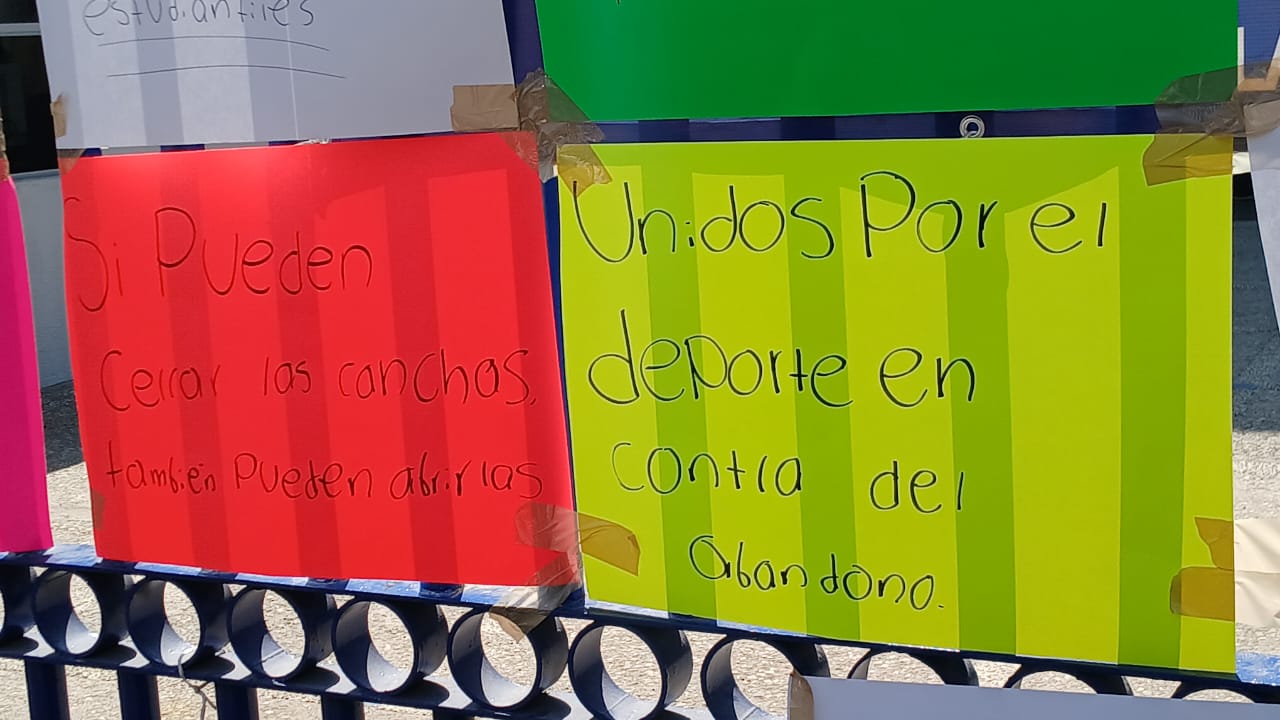 estudiantiles
Si Pueden
Cerrar las canchas,
también Pueden abrirlas
Unidos Por el
deporte en
contra del
abandono.